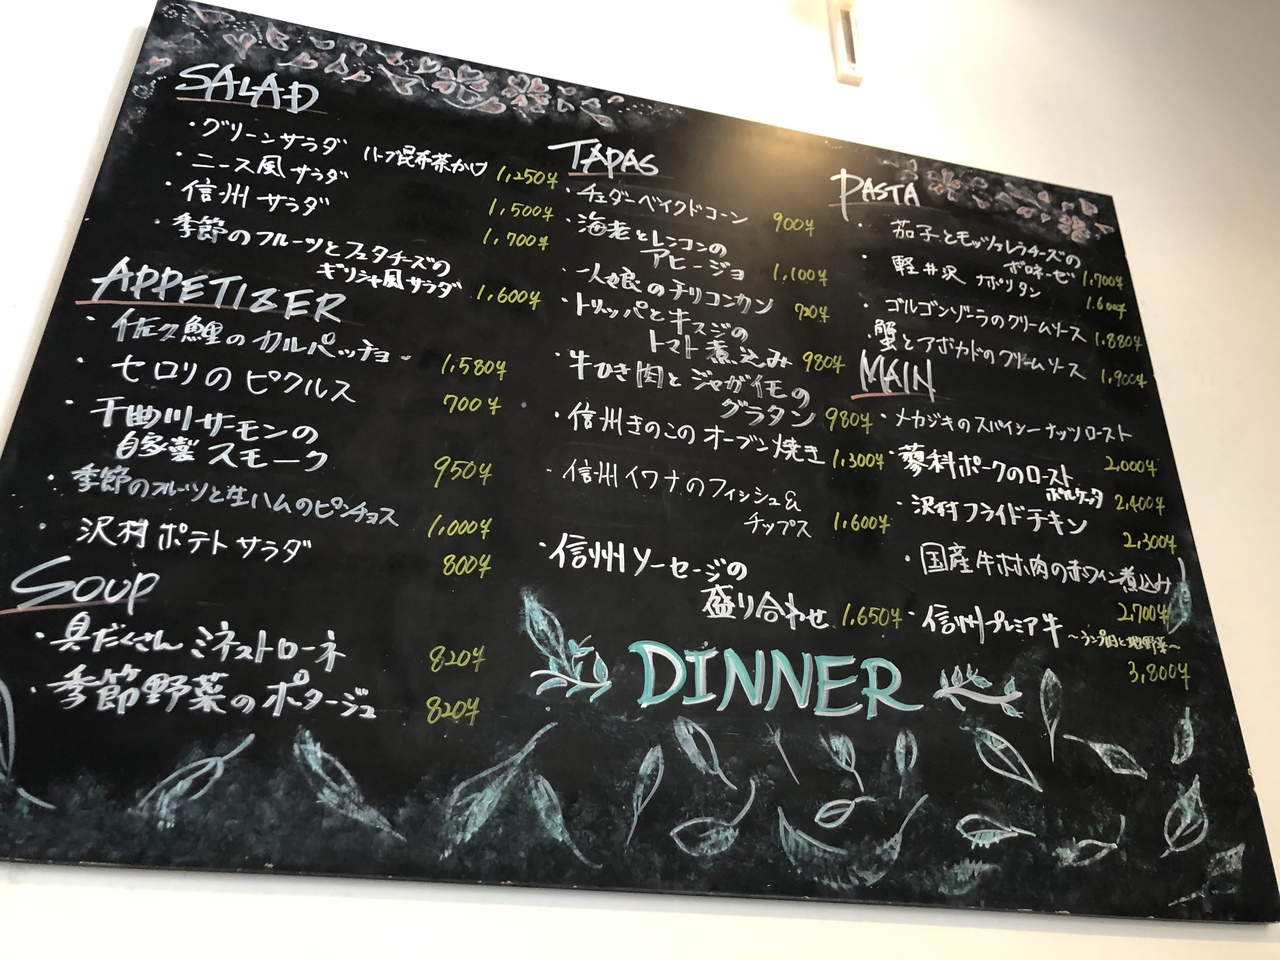 SALAD
・グリーンサラダ ハーブ昆布茶かけ 1,250¥
・ニース風サラダ 1,500¥
・信州サラダ 1,700¥
・季節のフルーツとフェタチーズの
ギリシャ風サラダ 1,600¥
APPETIZER
・佐久鯉のカルパッチョ 1,580¥
・セロリのピクルス 700¥
・千曲川サーモンの
自家製スモーク 950¥
・季節のフルーツと生ハムのピンチョス 1,000¥
・沢村ポテトサラダ 800¥
SOUP
・具だくさんミネストローネ 820¥
・季節野菜のポタージュ 820¥
TAPAS
・チェダーベイクドコーン 900¥
・海老とレンコンの
アヒージョ 1,100¥
・一人娘のチリコンカン 720¥
・トリッパとキスジの
トマト煮込み 980¥
・牛ひき肉とジャガイモの
グラタン 980¥
・信州きのこのオーブン焼き 1,300¥
・信州イワナのフィッシュ&
チップス 1,600¥
・信州ソーセージの
盛り合わせ 1,650¥
PASTA
・茄子とモッツァレラチーズの
ボロネーゼ 1,700¥
・軽井沢ナポリタン 1,600¥
・ゴルゴンゾーラのクリームソース 1,880¥
・蟹とアボカドのクリームソース 1,900¥
MAIN
・メカジキのスパイシーナッツロースト 2,000¥
・蓼科ポークのロースト
ポルケッタ 2,400¥
・沢村フライドチキン 2,300¥
・国産牛ホホ肉の赤ワイン煮込み 2,700¥
・信州プレミア牛
〜ランプ肉と地野菜〜
3,800¥
DINNER